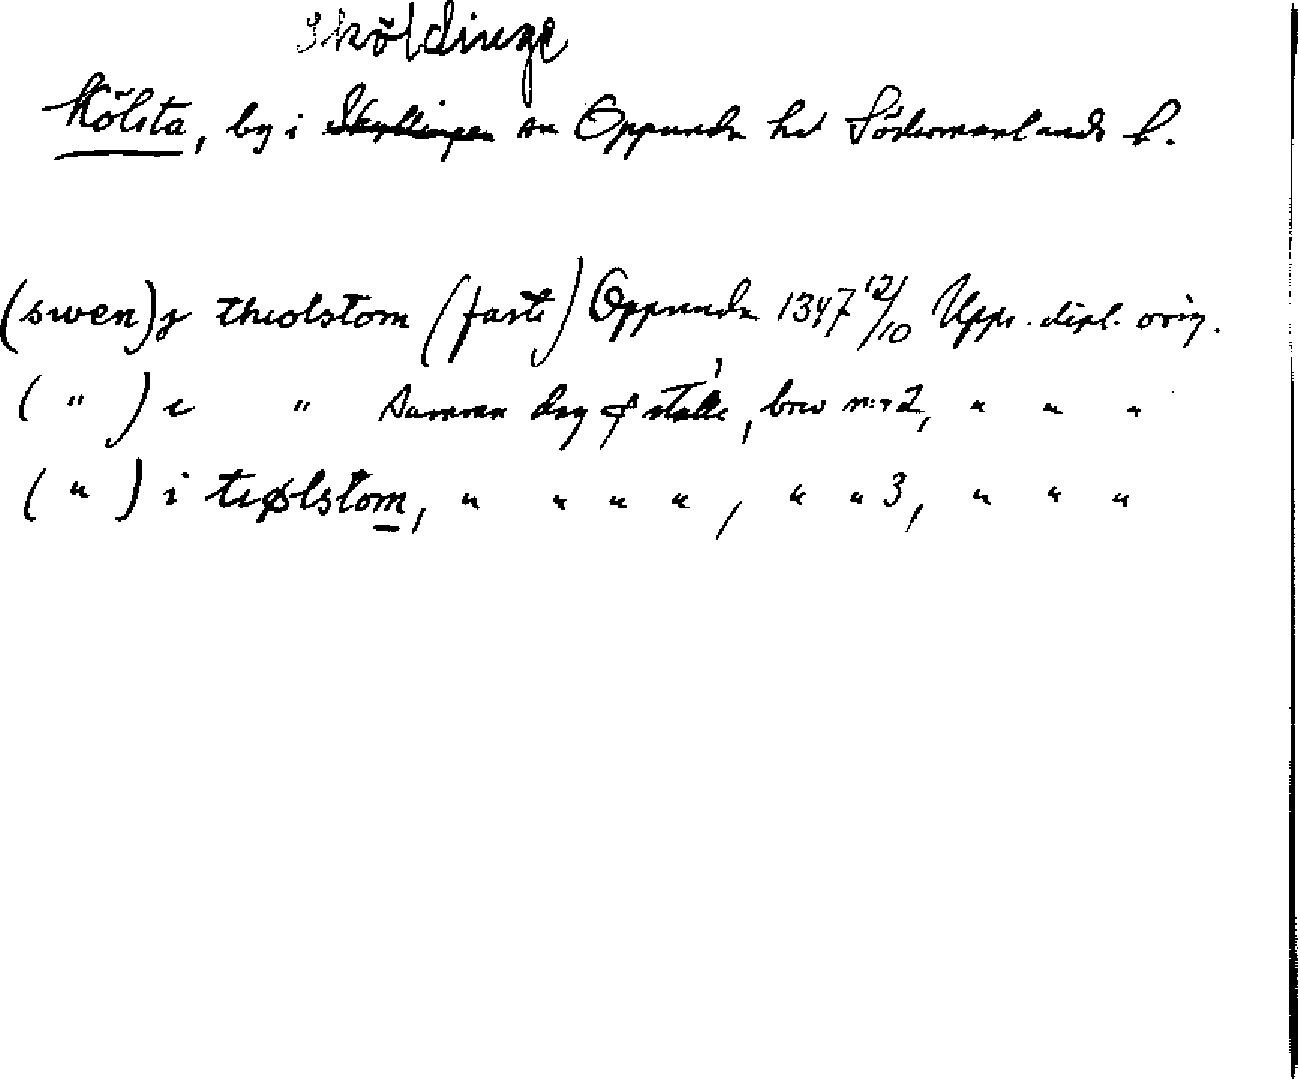 Sköldinge
Kölsta, by i Skyllingen sn Oppunda hd Södermanlands l.
(swen) j thiolstom (faste) Oppunda 1347 12/10 Upps. dipl. orig.
( " ) i " Samma dag o. ställe, brev nr 2, " " "
( " ) i tiølstom, " " " " , " " 3, " " "